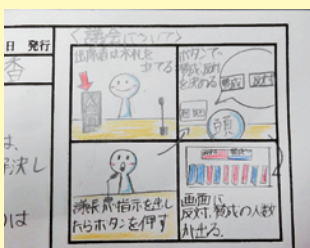 日 発行
香
は、
決し
のは
〈議会について〉
出席者は木札を
立てる
ボタンで
賛成、反対
を決める
賛成
反対
頭
議長が指示を出し
たらボタンを押す
画面に
反対、賛成の人数
が出る。